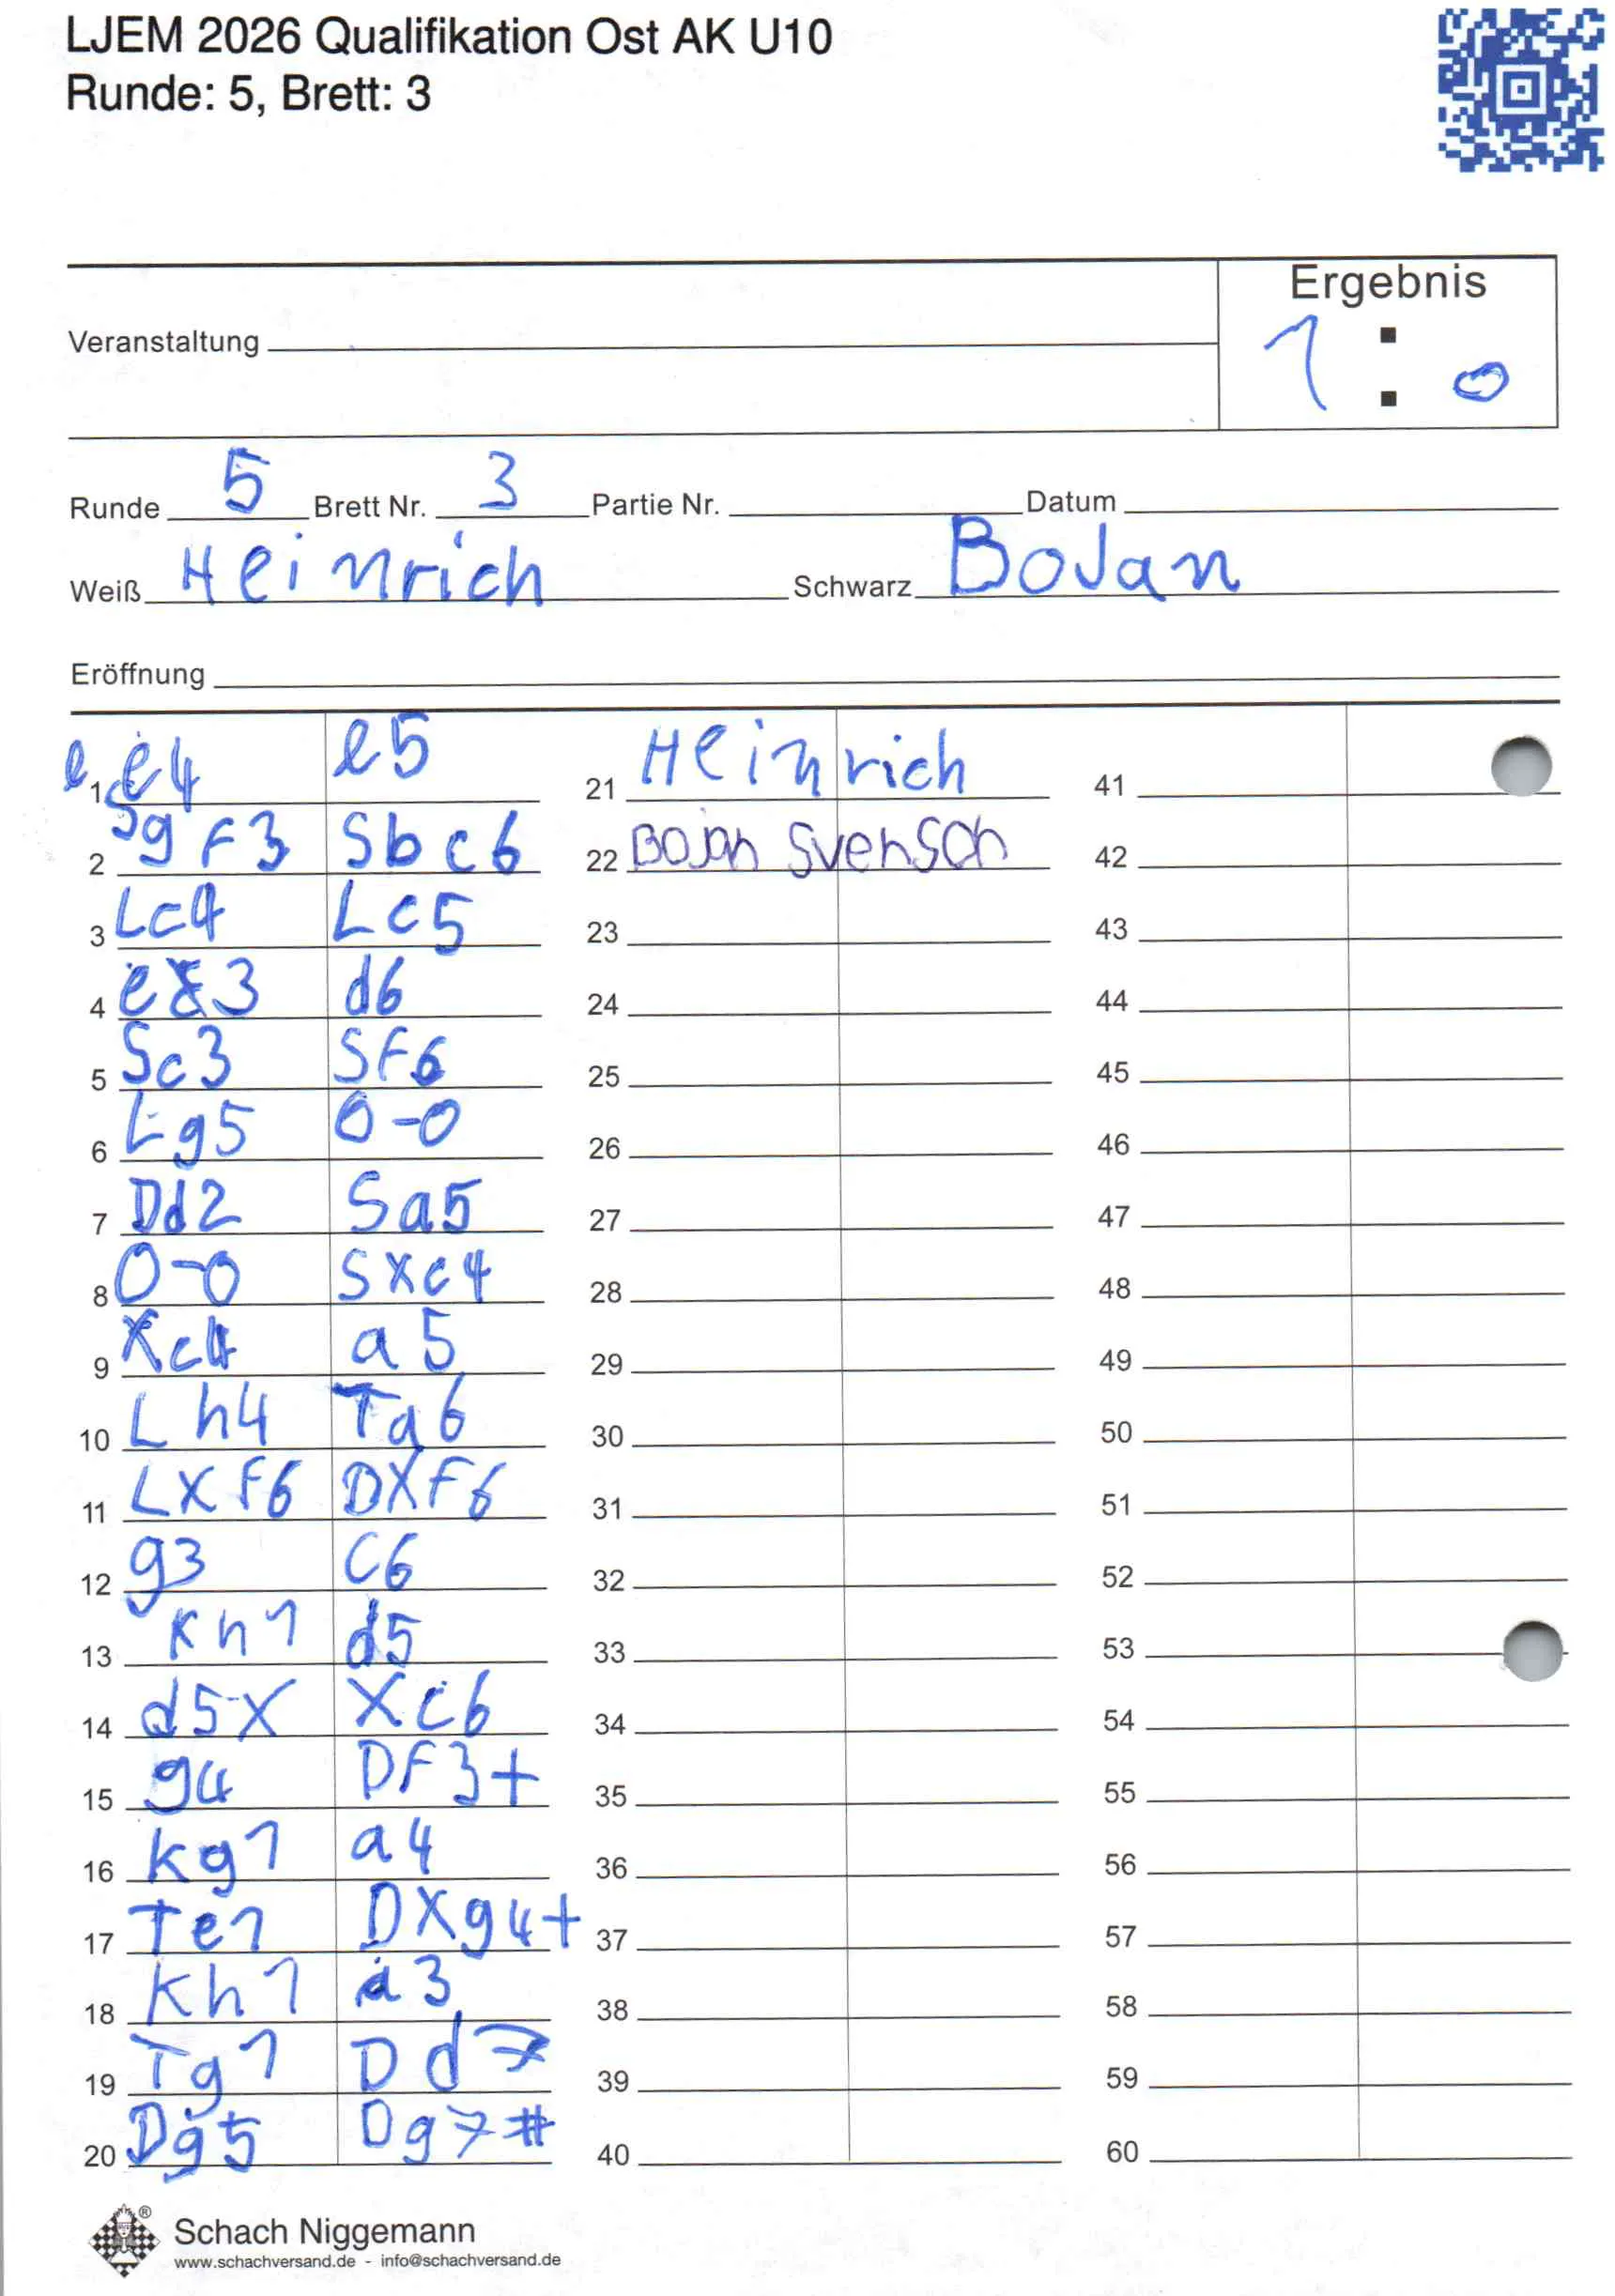 LJEM 2026 Qualifikation Ost AK U10
Runde: 5, Brett: 3
Ergebnis
1 : 0
Veranstaltung
Runde 5 Brett Nr. 3 Partie Nr. Datum
Weiß Heinrich Schwarz BoJan
Eröffnung
1 e4 e5
2 SgF3 Sbc6
3 Lc4 Lc5
4 3 d6
5 Sc3 SF6
6 Lg5 0-0
7 Dd2 Sa5
8 0-0 Sxc4
9 Xc4 a5
10 Lh4 Ta6
11 LXF6 DXF6
12 g3 C6
13 Kh1 d5
14 d5X Xc6
15 g4 DF3+
16 kg1 a4
17 Te1 DXg4+
18 Kh1 a3
19 Tg1 Dd7
20 Dg5 Dg7#
21 Heinrich
22 Bojan Svensch
23
24
25
26
27
28
29
30
31
32
33
34
35
36
37
38
39
40
41
42
43
44
45
46
47
48
49
50
51
52
53
54
55
56
57
58
59
60
Schach Niggemann
www.schachversand.de - info@schachversand.de